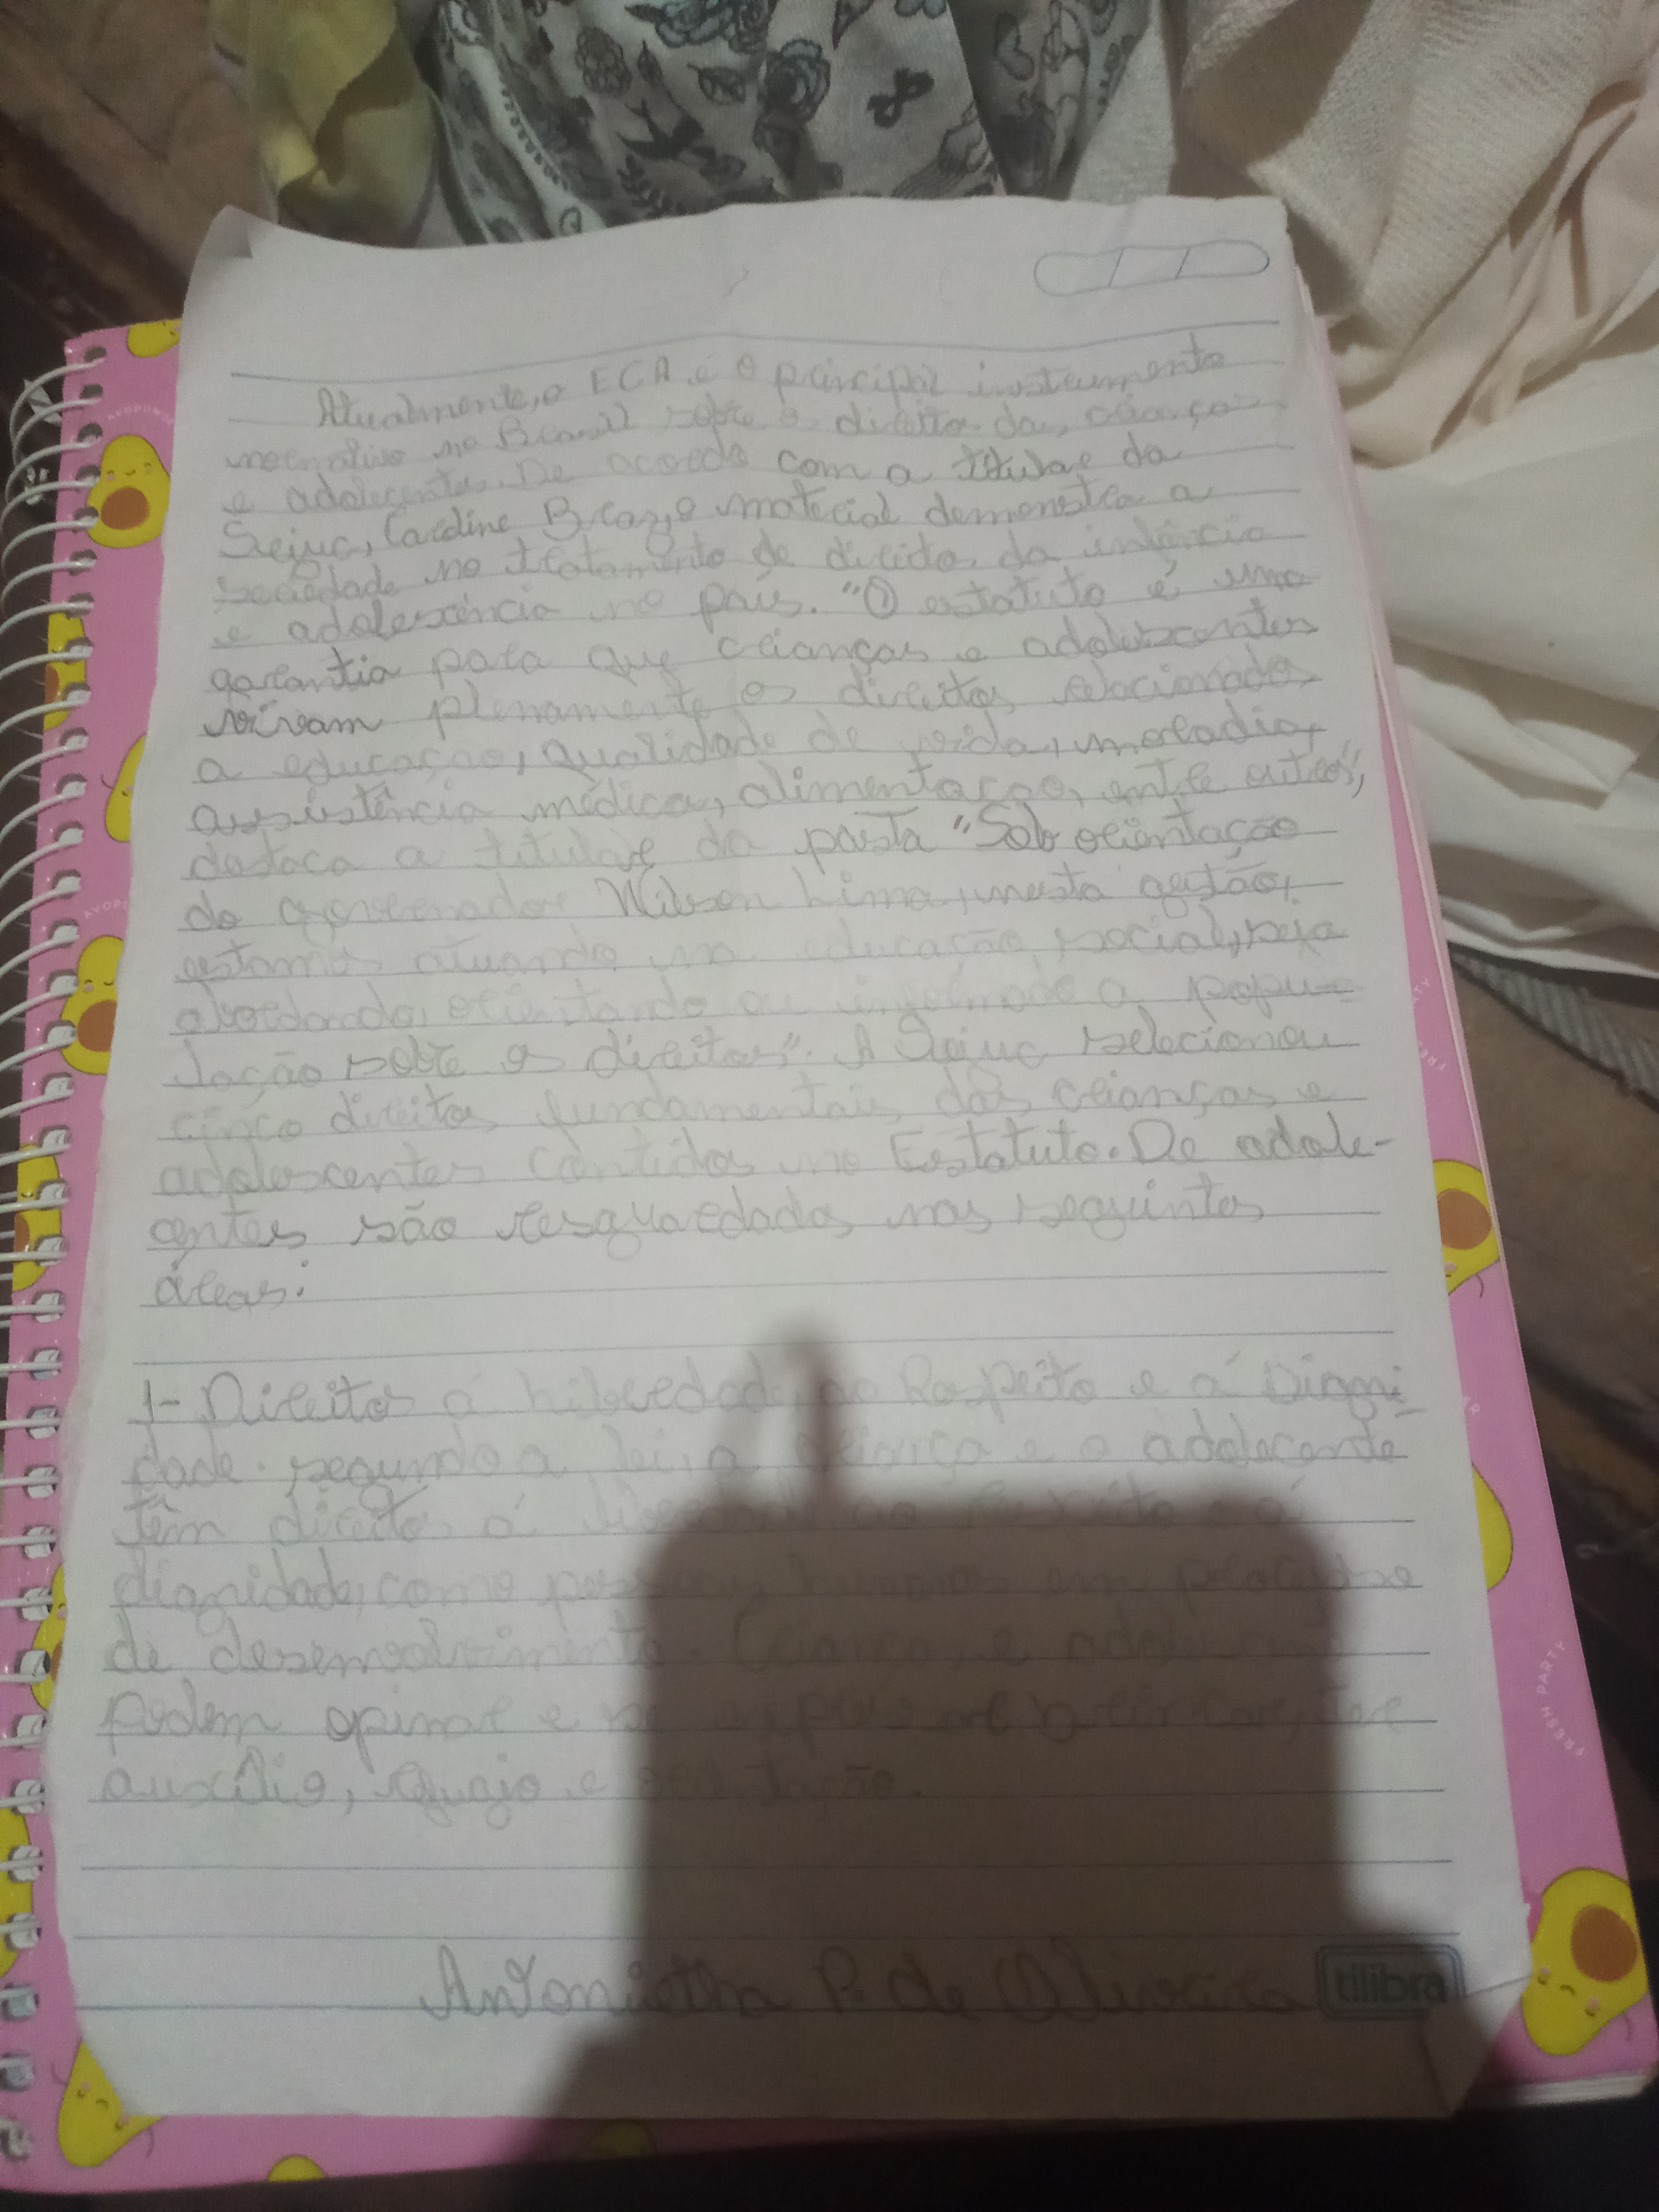 Atualmente, o ECA é o principal instrumento
normativo no Brasil sobre o direito da, crianças
e adolecentes. De acordo com a titular da
Sejuc, Caroline Braz, o material demonstra a
sociedade no tratamento de direito da infância
e adolescência no país. "O estatuto é uma
garantia para que crianças e adolescentes
vivam plenamente os direitos relacionados
a educação, qualidade de vida, moradia,
assistência médica, alimentação, entre outros",
destaca a titular da pasta "Sob orientação
do governador Wilson Lima, nesta gestão,
estamos atuando na educação social, seja
abordando, orientando ou informado a popu-
lação sobre os direitos". A Sejuc selecionou
cinco direitos fundamentais das crianças e
adolescentes contidos no Estatuto. De adole-
centes são resguardados nas seguintes
áreas:
1- Direitos á Liberdade, ao Respeito e á Digni-
dade. segundo a lei, a criança e o adolecente
têm direito á liberdade, ao respeito e á
dignidade, como pessoas humanas em processo
de desenvolvimento. Criança e
podem opinar e se
auxílio, e
Antonietha P. de Oliveira
tilibra
FRESH PARTY